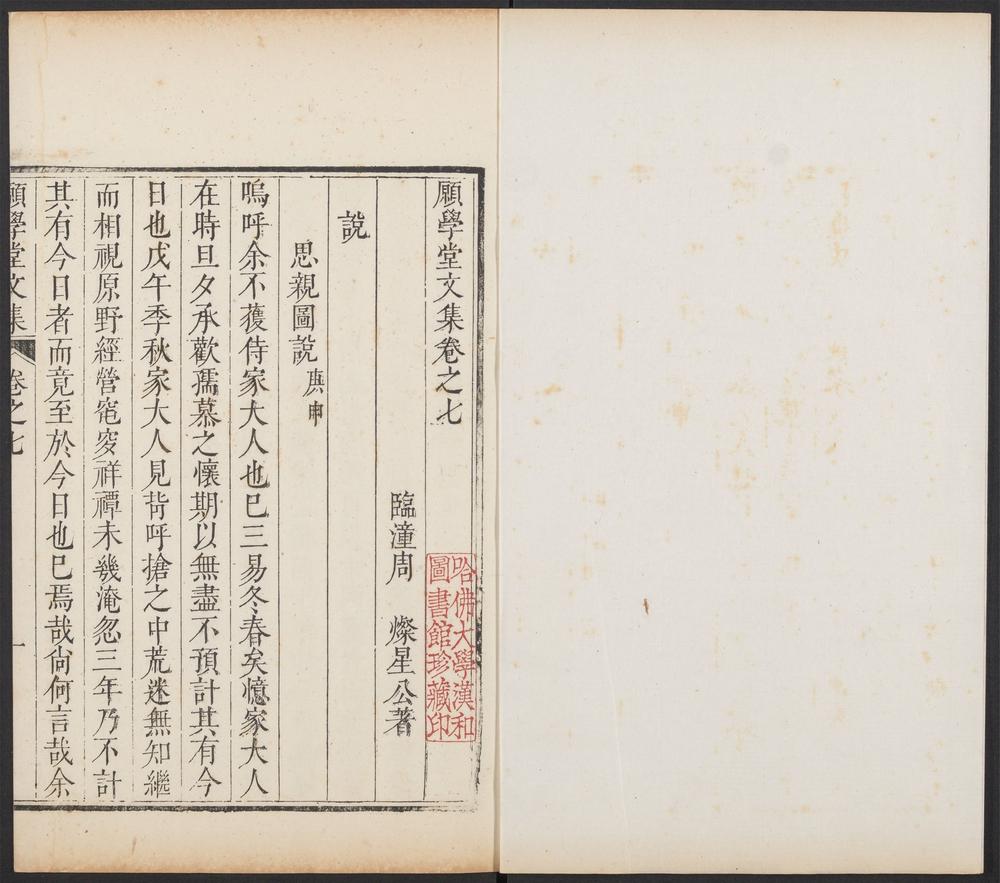 願學堂文集卷之七
哈佛大學漢和
圖書館珍藏印
臨潼周 燦星公著
說
思親圖說庚申
嗚呼余不獲侍家大人也已三易冬春矣憶家大人
在時旦夕承歡孺慕之懷期以無盡不預計其有今
日也戊午季秋家大人見背呼搶之中荒迷無知繼
而相視原野經營窀穸祥禫未幾淹忽三年乃不計
其有今日者而竟至於今日也已焉哉尚何言哉余
願學堂文集 卷之七 一